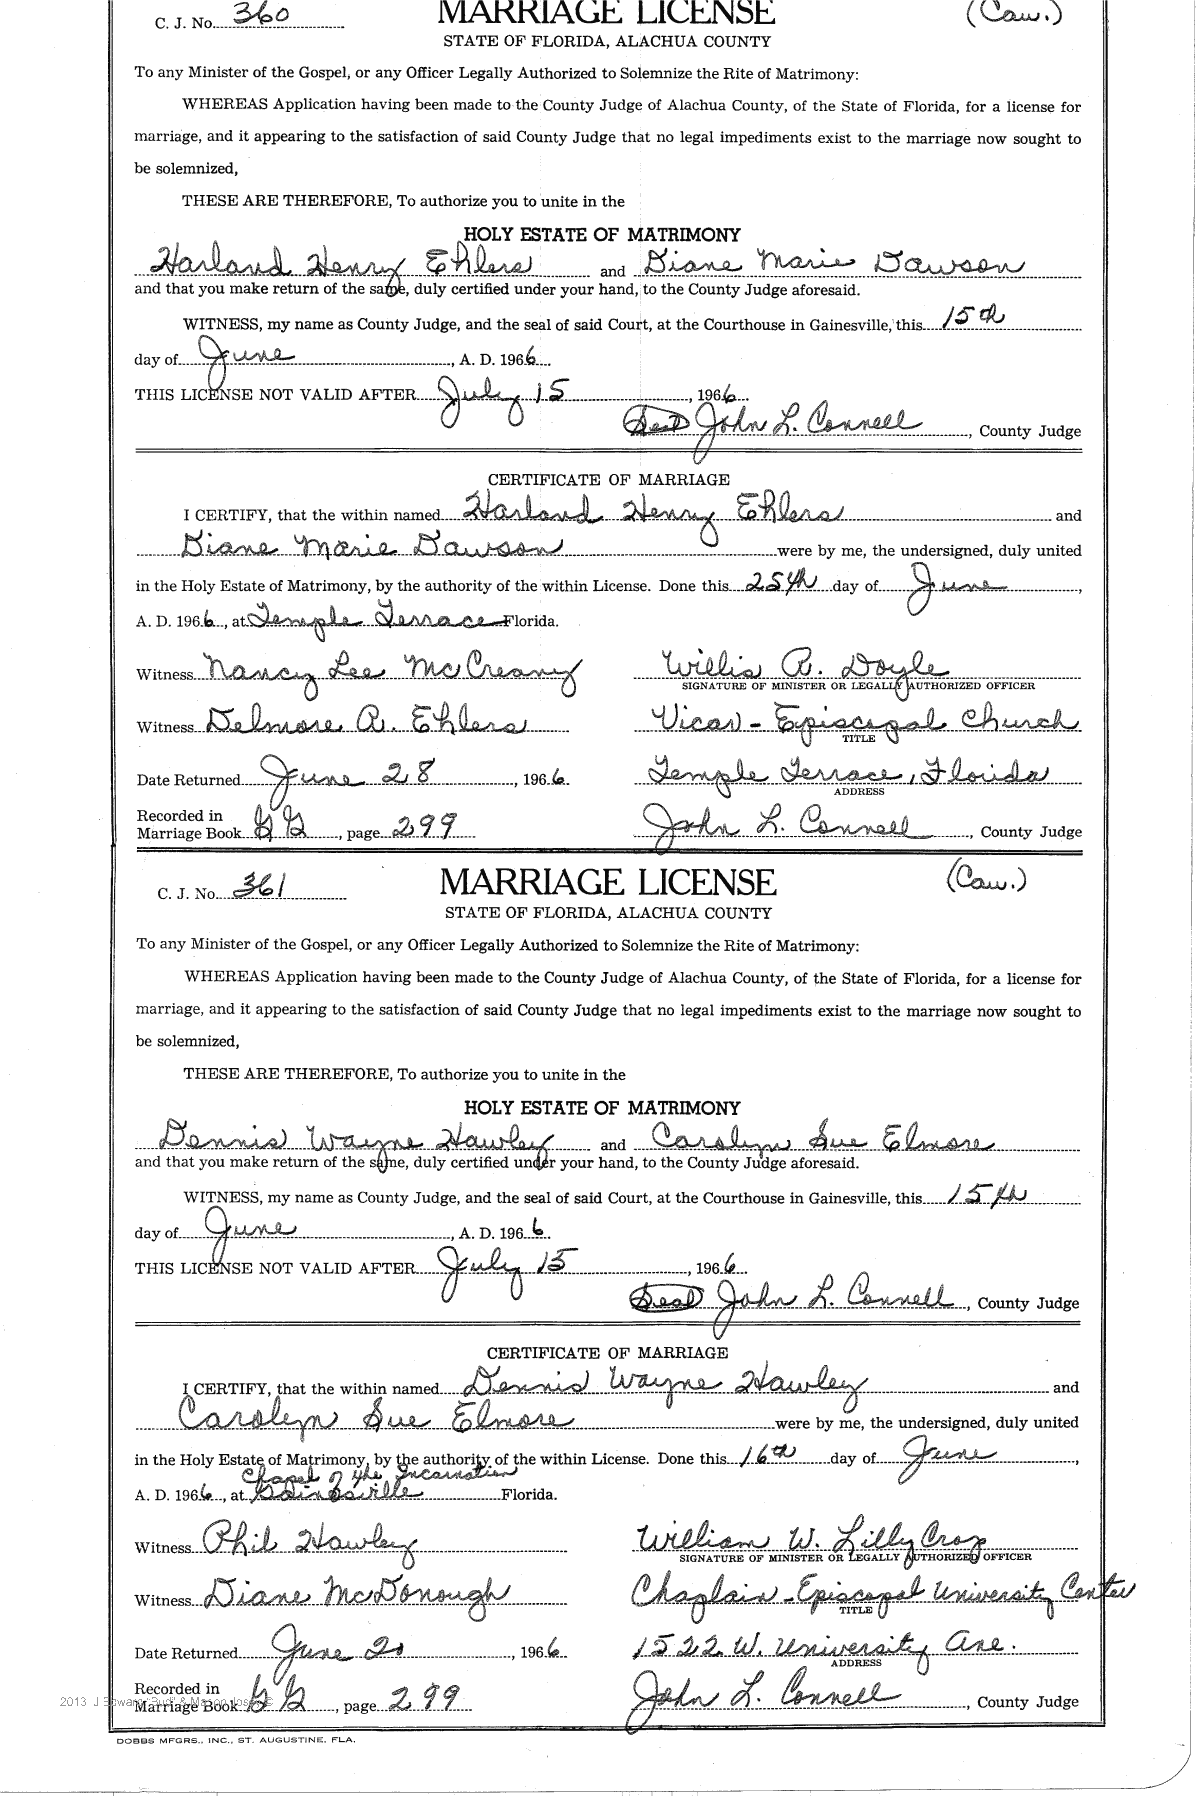 C. J. No. 360 MARRIAGE LICENSE (Cau.)
STATE OF FLORIDA, ALACHUA COUNTY
To any Minister of the Gospel, or any Officer Legally Authorized to Solemnize the Rite of Matrimony:
WHEREAS Application having been made to the County Judge of Alachua County, of the State of Florida, for a license for
marriage, and it appearing to the satisfaction of said County Judge that no legal impediments exist to the marriage now sought to
be solemnized,
THESE ARE THEREFORE, To authorize you to unite in the
HOLY ESTATE OF MATRIMONY
Harland Henry Ehlers and Diane Marie Dawson
and that you make return of the same, duly certified under your hand, to the County Judge aforesaid.
WITNESS, my name as County Judge, and the seal of said Court, at the Courthouse in Gainesville, this 15th
day of June, A. D. 1966
THIS LICENSE NOT VALID AFTER July 15, 1966
Seal John L. Connell, County Judge
CERTIFICATE OF MARRIAGE
I CERTIFY, that the within named Harland Henry Ehlers and
Diane Marie Dawson were by me, the undersigned, duly united
in the Holy Estate of Matrimony, by the authority of the within License. Done this 25th day of June,
A. D. 1966, at Temple Terrace Florida.
Witness Nancy Lee McCreary Willis R. Doyle
SIGNATURE OF MINISTER OR LEGALLY AUTHORIZED OFFICER
Witness Delmore A. Ehlers Vicar - Episcopal Church
TITLE
Date Returned June 28, 1966 Temple Terrace, Florida
ADDRESS
Recorded in
Marriage Book GG, page 299 John L. Connell, County Judge
C. J. No. 361 MARRIAGE LICENSE (Cau.)
STATE OF FLORIDA, ALACHUA COUNTY
To any Minister of the Gospel, or any Officer Legally Authorized to Solemnize the Rite of Matrimony:
WHEREAS Application having been made to the County Judge of Alachua County, of the State of Florida, for a license for
marriage, and it appearing to the satisfaction of said County Judge that no legal impediments exist to the marriage now sought to
be solemnized,
THESE ARE THEREFORE, To authorize you to unite in the
HOLY ESTATE OF MATRIMONY
Dennis Wayne Hawley and Carolyn Sue Elmore
and that you make return of the same, duly certified under your hand, to the County Judge aforesaid.
WITNESS, my name as County Judge, and the seal of said Court, at the Courthouse in Gainesville, this 15th
day of June, A. D. 1966.
THIS LICENSE NOT VALID AFTER July 15, 1966
Seal John L. Connell, County Judge
CERTIFICATE OF MARRIAGE
I CERTIFY, that the within named Dennis Wayne Hawley and
Carolyn Sue Elmore were by me, the undersigned, duly united
in the Holy Estate of Matrimony, by the authority of the within License. Done this 16th day of June,
Chapel of the Incarnation
A. D. 1966, at Gainesville Florida.
Witness Phil Hawley William W. Lilly Crop
SIGNATURE OF MINISTER OR LEGALLY AUTHORIZED OFFICER
Witness Diane McDonough Chaplain - Episcopal University Center
TITLE
Date Returned June 20, 1966 1522 W. University Ave.
ADDRESS
Recorded in
Marriage Book GG, page 299 John L. Connell, County Judge
DOBBS MFGRS., INC., ST. AUGUSTINE, FLA.